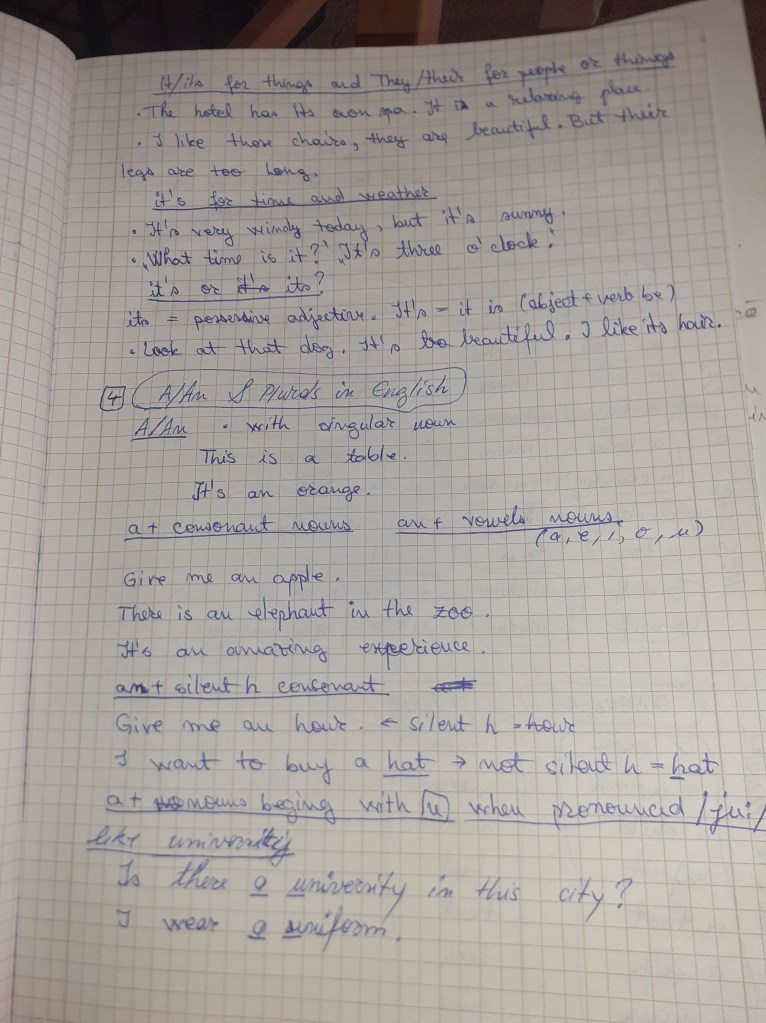 It/its for things and They/their for people or things
• The hotel has its own spa. It is a relaxing place.
• I like those chairs, they are beautiful. But their
legs are too long.
it's for time and weather
• It's very windy today, but it's sunny.
• „What time is it?" „It's three o'clock."
it's or it's its?
its = possessive adjective. It's = it is (object + verb be)
• Look at that dog. It's so beautiful. I like its hair.
4 A/An & Plurals in English
A/An • with singular noun
This is a table.
It's an orange.
a + consonant nouns an + vowels nouns
(a, e, i, o, u)
Give me an apple.
There is an elephant in the zoo.
It's an amazing experience.
an + silent h consonant
Give me an hour. ← silent h = hour
I want to buy a hat → not silent h = hat
a + nouns beging with u when pronouncd /ju:/
like university
Is there a university in this city?
I wear a uniform.